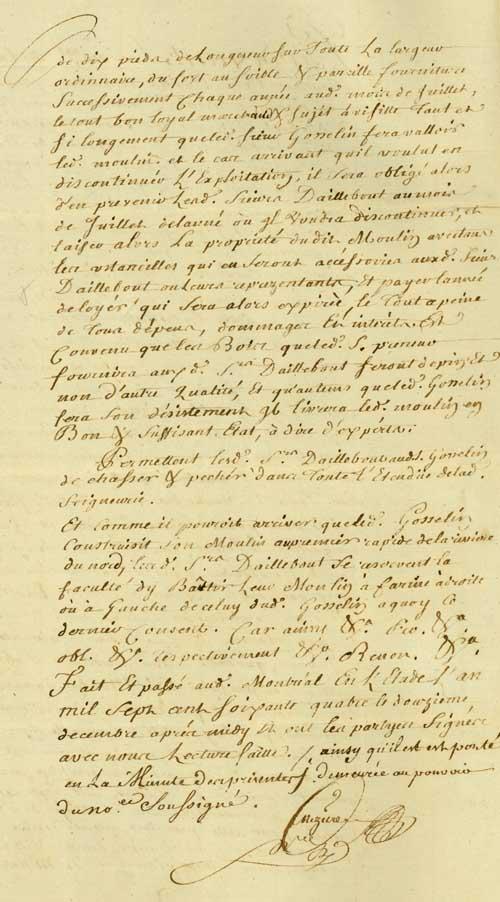 de dix pieds de Longueur sur Toute La largeur
ordinaire, du fort au foible & pareille fourniture
Successivement Chaque année aud. mois de Juillet,
le tout bon loyal marchand & sujet à visitte Tant et
si longement que led. Sieur Gosselin fera valloir
led. moulin et le cas arrivant quil voulut en
discontinuer L'Exploitation, il sera obligé alors
d'en prevenir Lesd. Sieurs Daillebout au mois
de Juillet delanné ou il voudra discontinuer, et
laisser alors La propriété dudit Moulin avec tous
les ustancilles qui en seront accéssoires auxd. Sieurs
Daillebout ou Leurs representants, Et payer lannée
de loyér qui sera alors expirée, le Tout a peine
de Tous dépens, dommages Et interets. Est
Convenu que les Bois que led. S. preneur
fournira auxd. Srs Daillebout seront de pin, Et
non d'autre Qualité, Et qu'au tems que led. Gosselin
fera Son désistement il livrera led. moulin en
Bon & Suffisant Etat, à dire d'experts.
Permettent lesd. Srs Daillebout aud S. Gosselin
de chasser & pecher dans Toute l'Etendüe de lad.
Seigneurie.
Et comme il pouroit arriver que led. Gosselin
Construisit son Moulin au premier rapide de la riviere
du nord, lesd. Srs Daillebout se reservent la
faculté dy Bâttir Leur Moulin à farine à droite
où à Gauche de celuy dud. Gosselin a quoy ce
dernier Consent. Car ainsy &a Pro. &a
obl. &a. respectivement Renon. &a
Fait et passé aud. Montréal En L'Etude L'an
mil Sept cent soixante quatre le douzieme
decembre après midy Et ont les partyes Signée
avec nous Lecture faitte. / ainsy qu'il est est porté
en La Minute des presentes / demeurée au pouvoir
du nore Soussigné.
Mezure